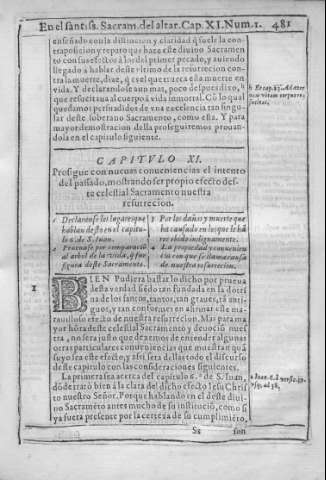 En el santiss. Sacram. del altar. Cap. XI. Num. 1. 481
enseñado con la distincion y claridad q̃ suele la con
traposicion y reparo que haze este divino Sacramento
con sus efectos à los del primer pecado, y auiendo
llegado a hablar deste vltimo de la resurreccion con
tra la muerte, dize, q̃ es el que trueca essa muerte en
vida. Y declarandose aun mas, poco despues dize, b
que resucita a al cuerpo à vida immortal. Cõ lo qual
quedamos persuadidos de vna excelencia tan singu
lar deste soberano Sacramento, como esta. Y para
mayor demostracion della proseguiremos prouan
dola en el capitulo siguiente.
CAPITVLO XI.
Prosigue con nueuas conueniencias el intento
del passado, mostrando ser propio efecto des-
te celestial Sacramento nuestra
resurreccion.
1 Declaranse los lugares que
hablan desto en el capitu-
lo 6. de S. Iuan.
2 Prouase por comparaciō
al arbol de la vida, q̃ fue
figura deste Sacramento.
3 Por los daños y muerte que
ha causado en los que le hā
recebido indignamente.
4 La propiedad y conuenien
cia con que se llama causa
de nuestra resurreccion.
1
BIEN Pudiera bastar lo dicho por prueua
desta verdad, siẽdo tan fundada en la dotri
na de los santos, tantos, tan graues, tã anti
guos, y tan conformes en afirmar este ma-
rauilloso efecto de nuestra resurreccion. Mas para ma
yor hõra deste celestial Sacramento y deuociõ nues
tra, no sera justo que dexemos de entender algunas
otras particulares conueniẽcias que muestran quã
suyo sea este efecto, y assi sera dallas todo el discurso
de este capitulo con las consideraciones siguientes.
La primera sea acerca del capitulo 6. a de S. Iuan,
dõde tratò biẽn à la clara del dicho efecto Iesu Chris
to nuestro Señor. Porque hablando en el deste diui
no Sacramẽto antes mucho de su instituciõ, como si
ya fuera presente por la certeza de su cumplimiẽto,
Ss son